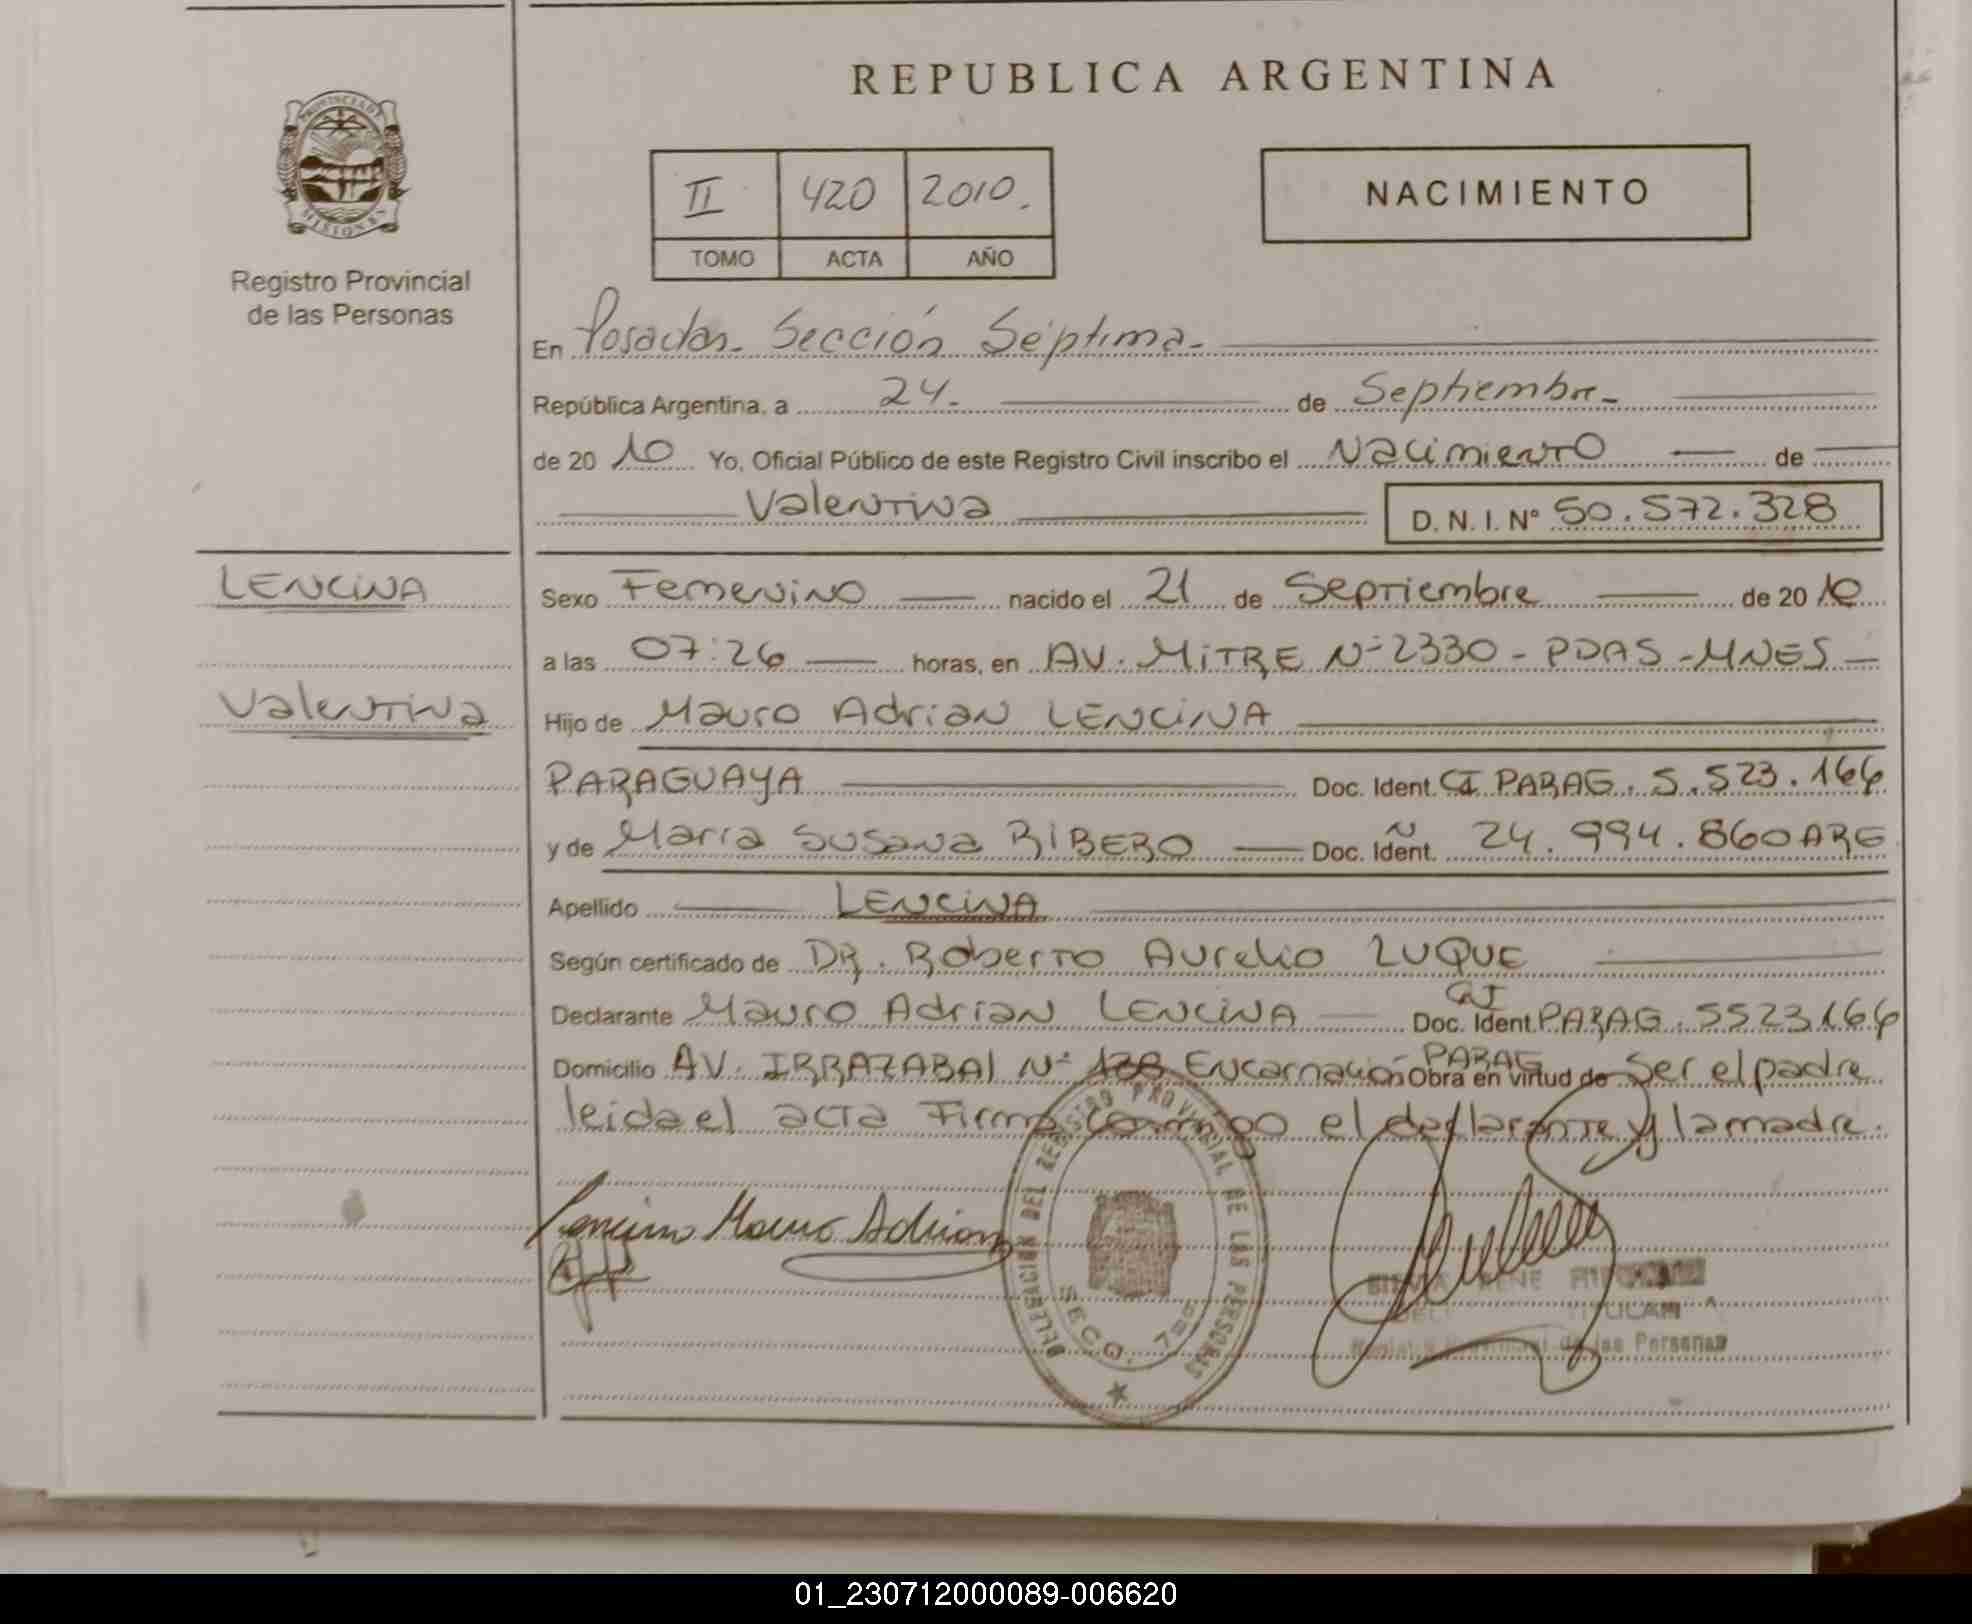 REPUBLICA ARGENTINA
PROVINCIA DE MISIONES
Registro Provincial
de las Personas
II 420 2010.
TOMO ACTA AÑO
NACIMIENTO
En Posadas. Sección Séptima.
República Argentina, a 24. de Septiembre.
de 20 10 Yo, Oficial Público de este Registro Civil inscribo el Nacimiento de
Valentina D. N. I. N° 50.572.328
LENCINA
Valentina
Sexo Femenino nacido el 21 de Septiembre de 20 10
a las 07:26 horas, en AV. MITRE N° 2330 - PDAS - MNES
Hijo de Mauro Adrian LENCINA
PARAGUAYA Doc. Ident. CI PARAG. 5.523.166
y de Maria Susana RIBERO Doc. Ident. Ñ 24.994.860 ARG
Apellido LENCINA
Según certificado de DR. Roberto Aurelio LUQUE
Declarante Mauro Adrian LENCINA Doc. Ident CI PARAG. 5523166
Domicilio AV. IRRAZABAl N° Encarnación PARAG Obra en virtud de Ser el padre
leida el acta Firma conmigo el declarante y la madre.
Mauro Adrian
DELEGACION DEL REGISTRO PROVINCIAL DE LAS PERSONAS
SECC. 7ma
TITULAR
de las Personas
01_230712000089-006620